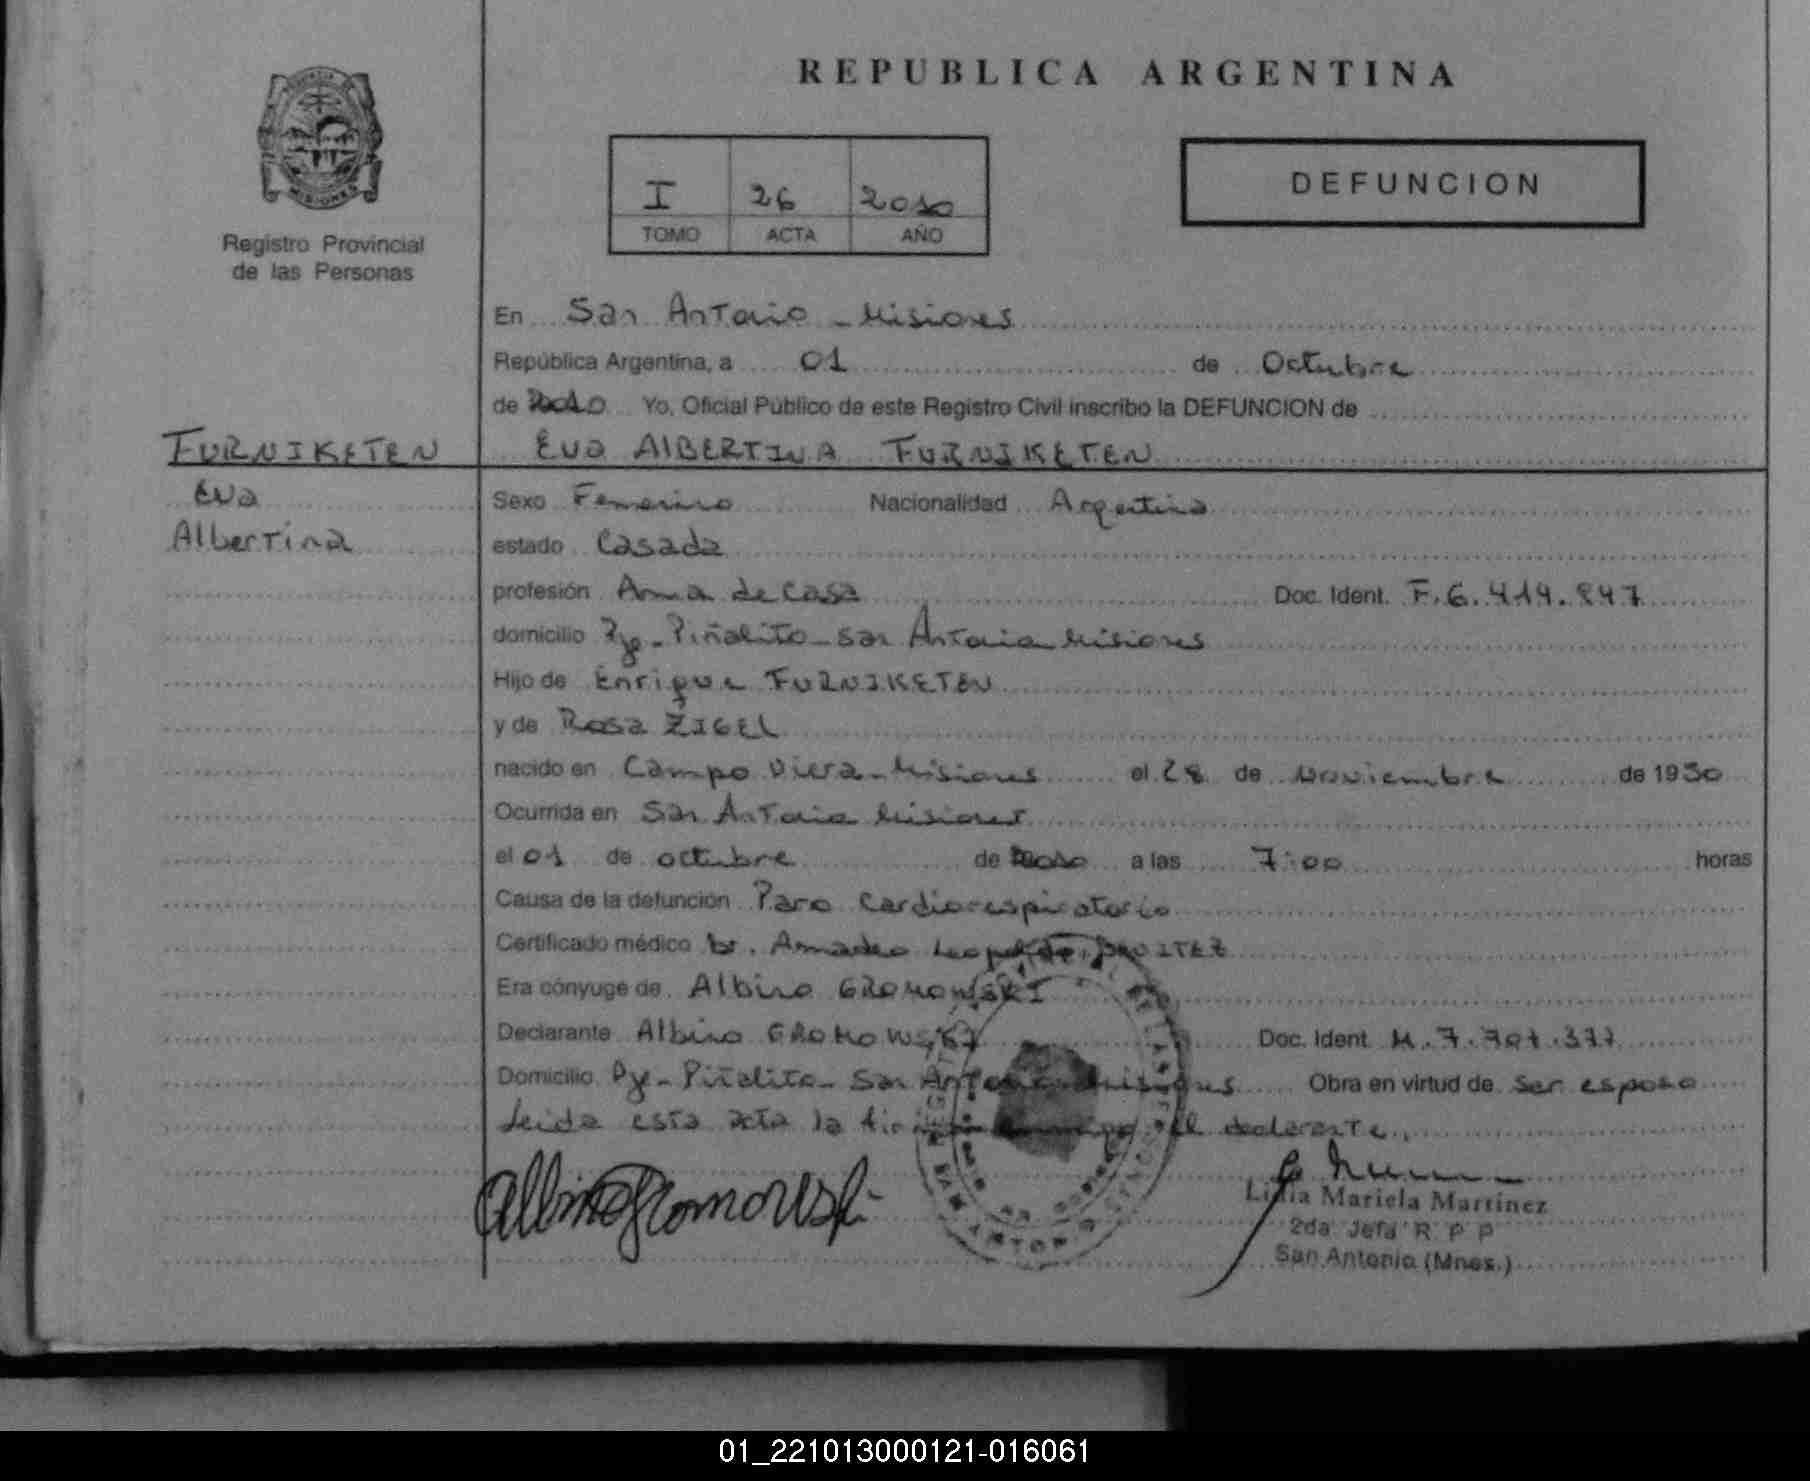 REPUBLICA ARGENTINA
I 26 2010
TOMO ACTA AÑO
DEFUNCION
Registro Provincial
de las Personas
En San Antonio - Misiones
República Argentina, a 01 de Octubre
de 2010 Yo, Oficial Público de este Registro Civil inscribo la DEFUNCION de
FURNIKETEN
Eva ALBERTINA FURNIKETEN
Eva
Albertina
Sexo Femenino Nacionalidad Argentina
estado Casada
profesión Ama de casa Doc. Ident. F.6.414.847
domicilio Pje - Piñalito - San Antonio Misiones
Hijo de Enrique FURNIKETEN
y de Rosa ZIGEL
nacido en Campo Viera - Misiones el 28 de Noviembre de 1950
Ocurrida en San Antonio Misiones
el 01 de octubre de 2010 a las 7:00 horas
Causa de la defunción Paro Cardiorespiratorio
Certificado médico Dr. Amadeo BENITEZ
Era cónyuge de Albino GROMOWSKI
Declarante Albino GROMOWSKI Doc. Ident. M.7.701.377
Domicilio Pje - Piñalito - San Antonio Misiones Obra en virtud de ser esposo
Leida esta acta la el declarante,
Albino Gromowski
Lidia Mariela Martinez
2da Jefa R P P
San Antonio (Mnes.)
01_221013000121-016061